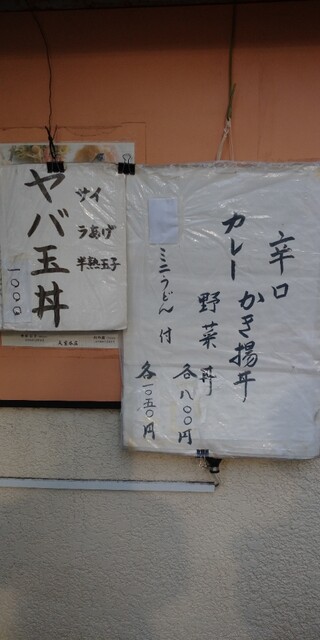 辛口
カレーかき揚丼
野菜丼
各八〇〇円
ミニうどん付
各一〇五〇円
ヤバ玉丼
一〇〇〇
サイ
うあげ
半熟玉子